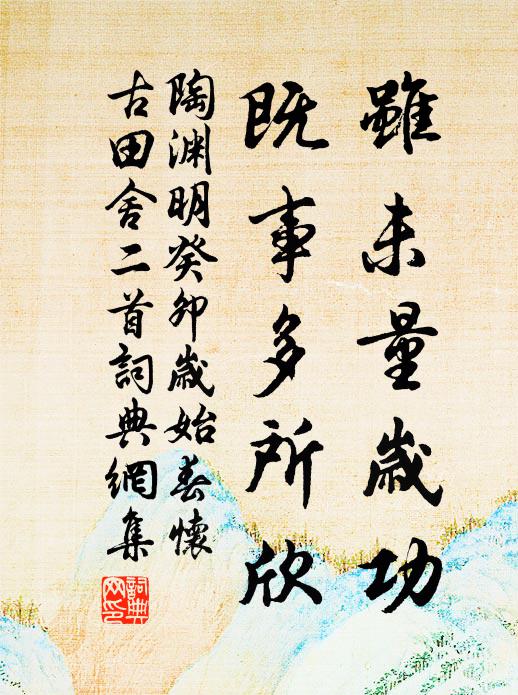 雖未量歲功
既事多所欣
陶淵明癸卯歲始春懷
古田舍二首詞典網集
詞典网印